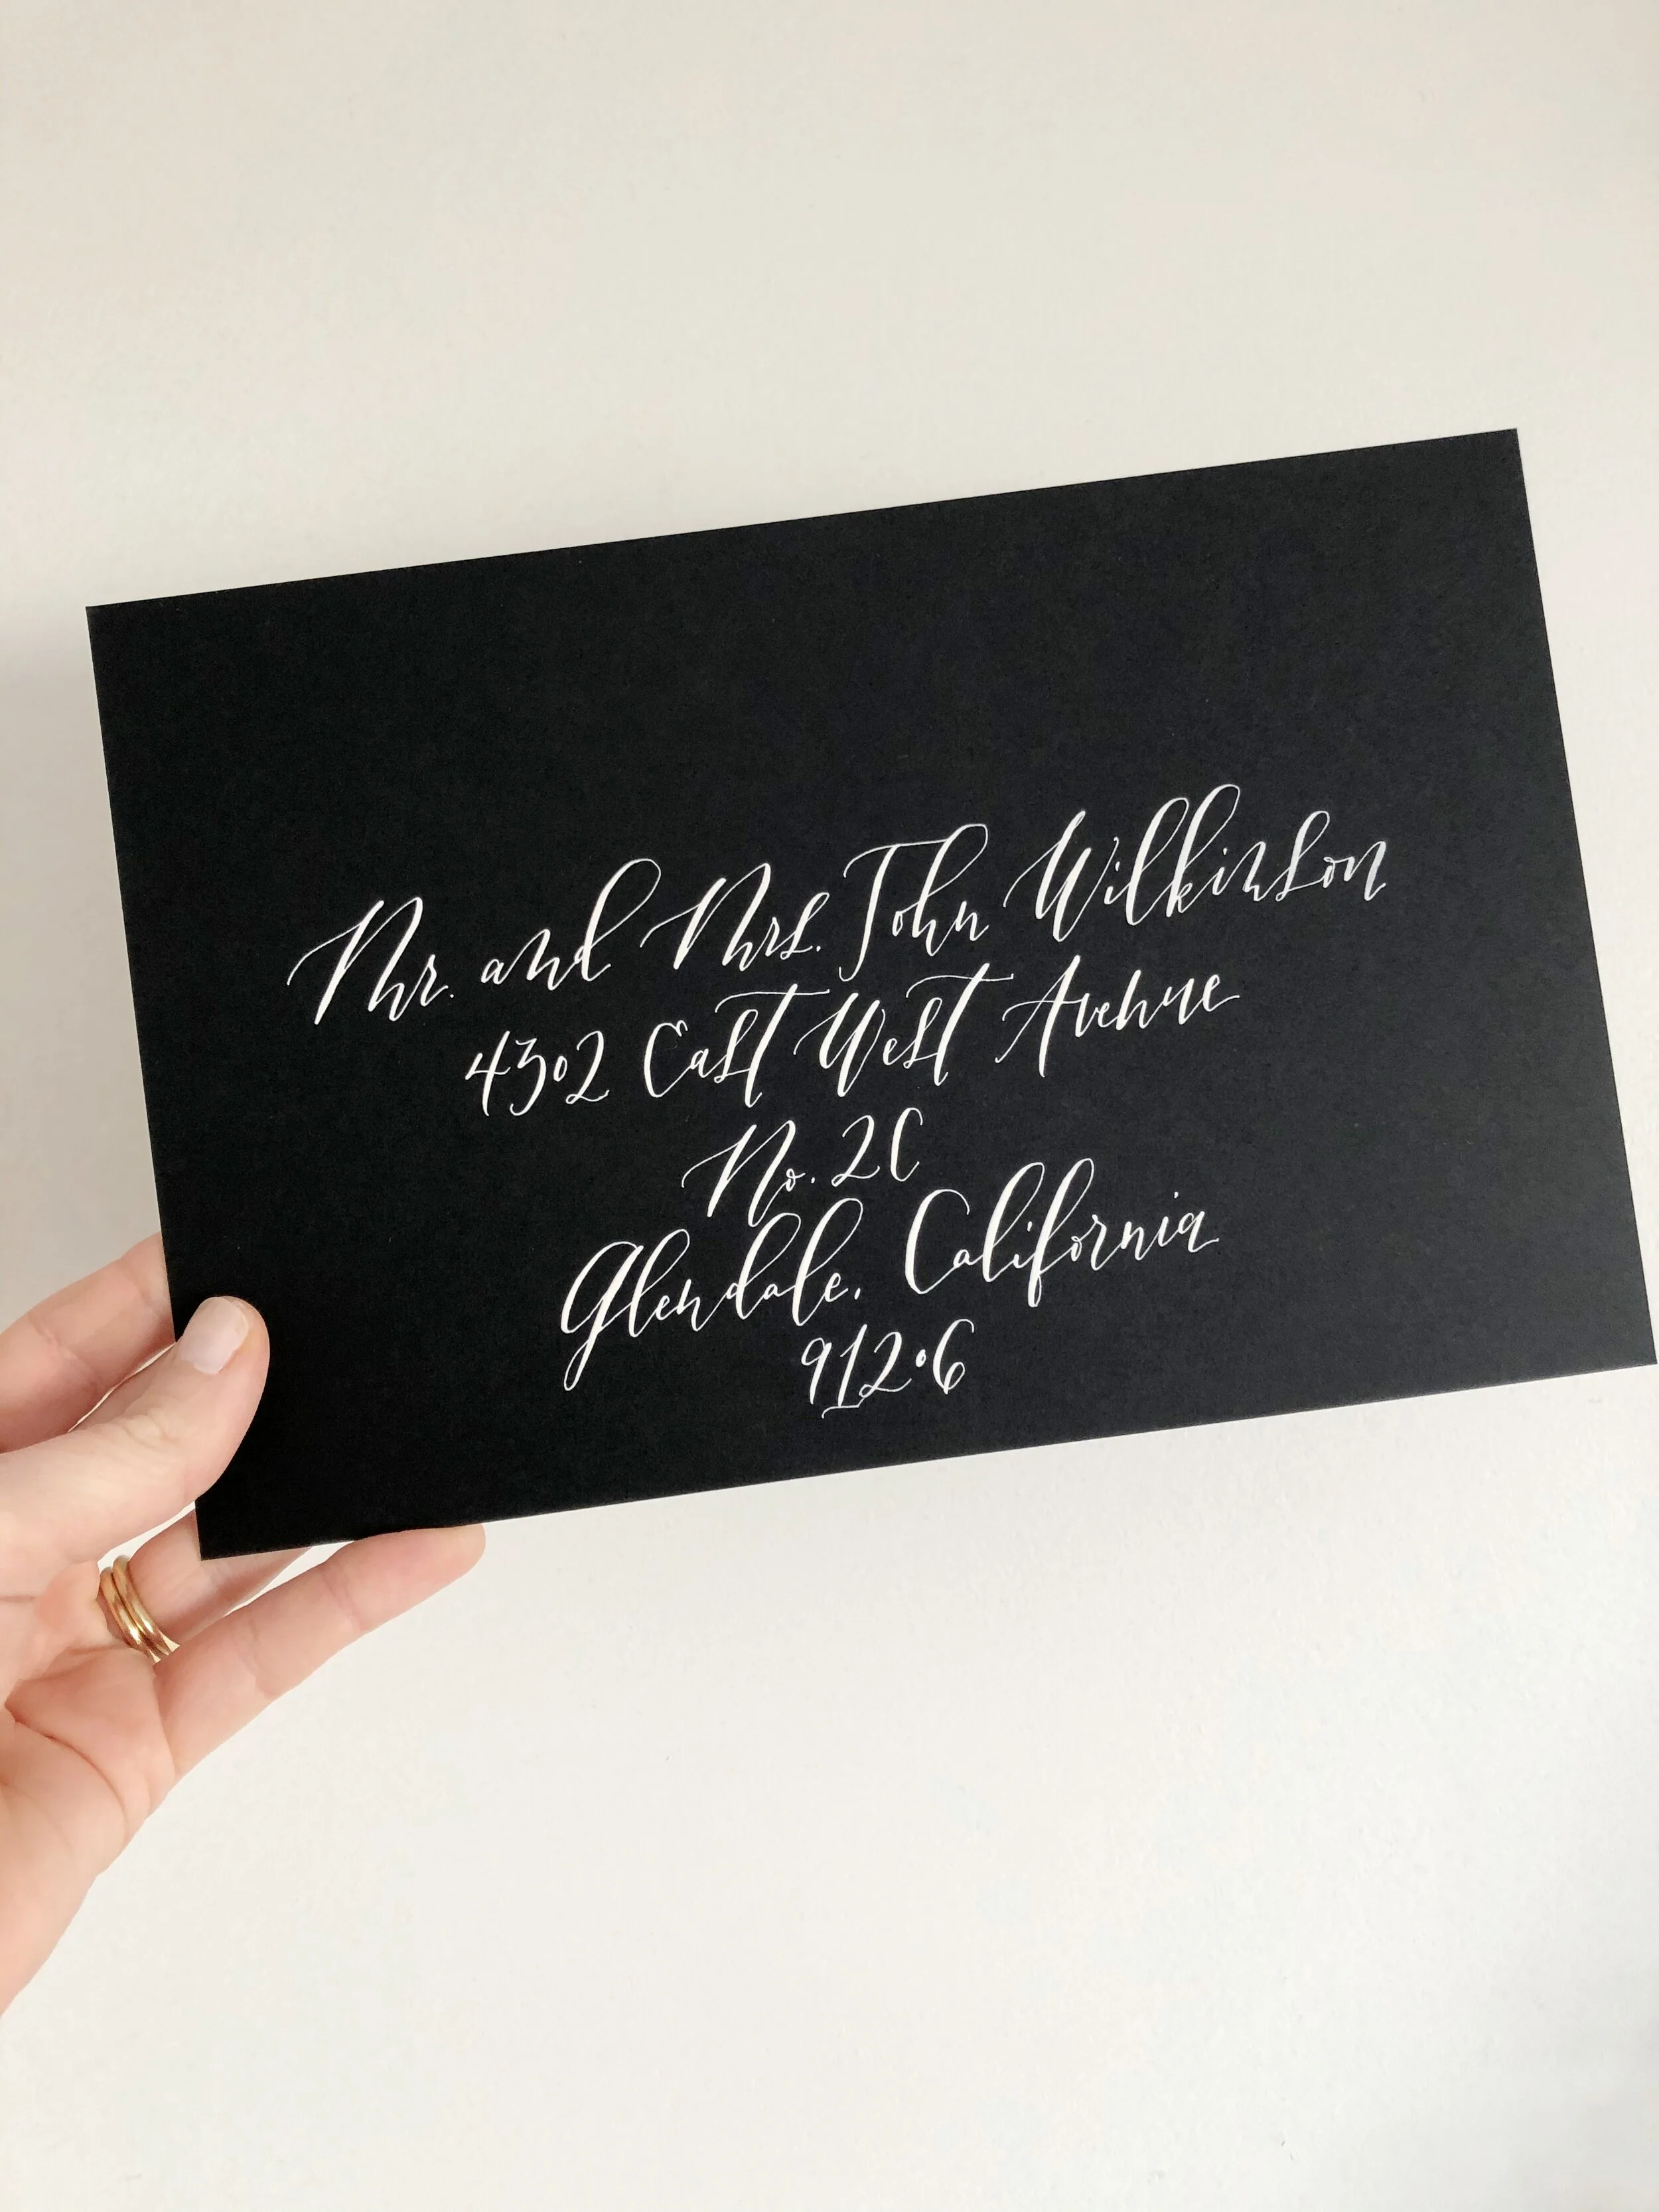 Mr. and Mrs. John Wilkinson
4302 East West Avenue
No. 2C
Glendale, California
91206